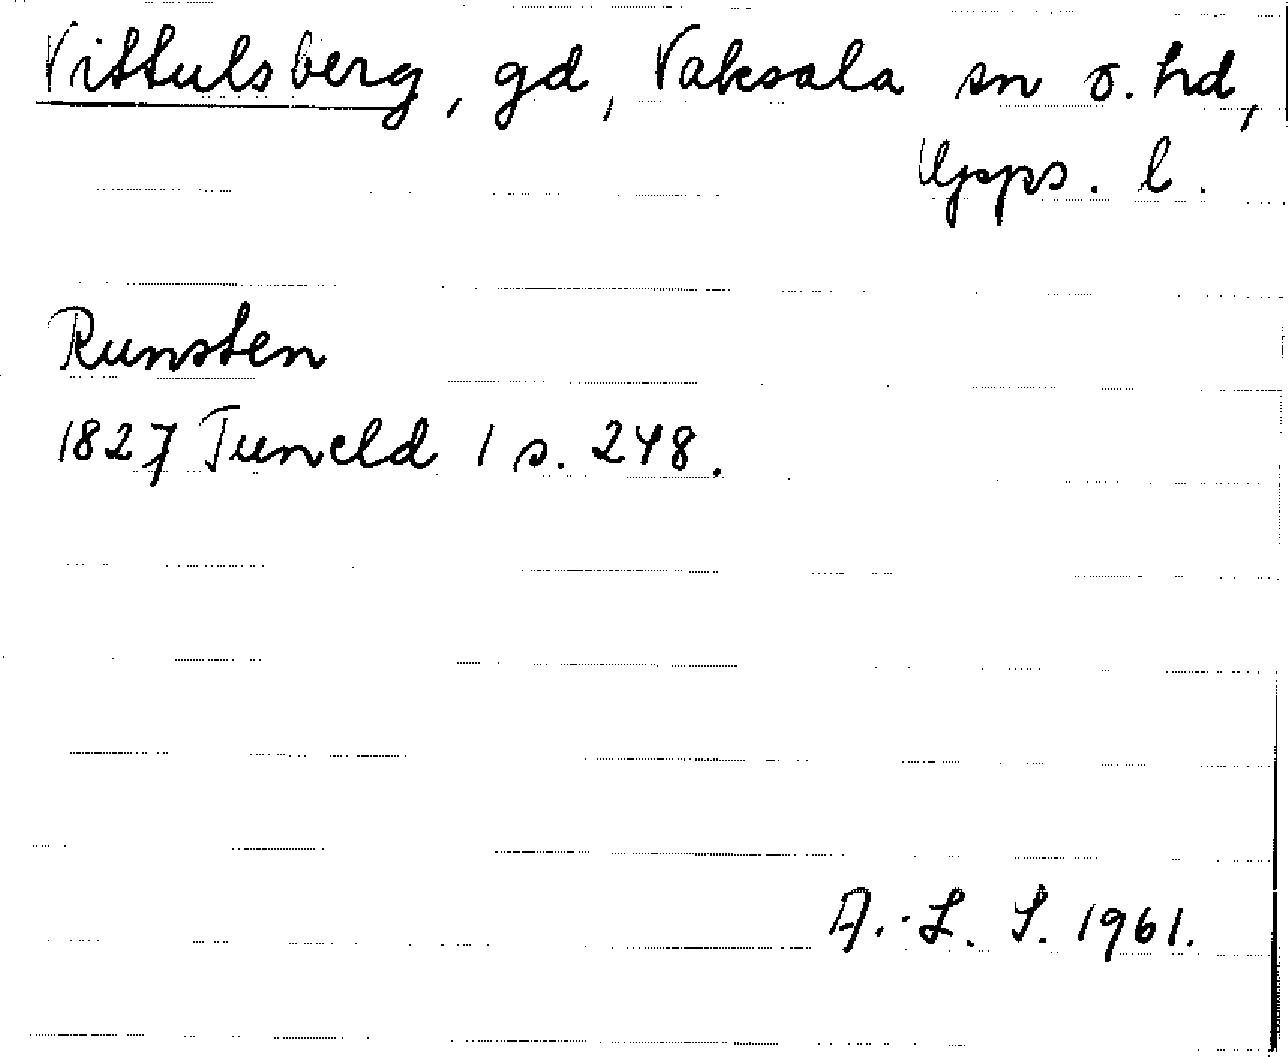 Vittulsberg, gd, Vaksala sn o. hd,
Upps. l.
Runsten
1827 Tuneld 1 s. 248.
A.-L. S. 1961.